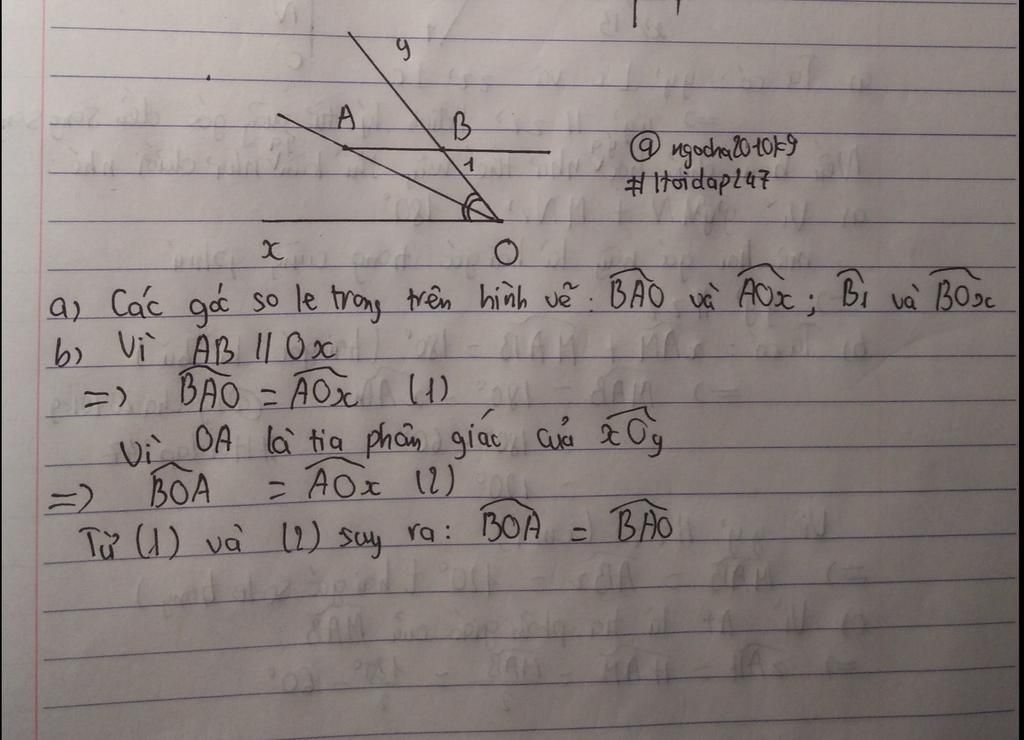 y
A
B
1
@ ngocha2010k9
#1toidap247
x
O
a) Các góc so le trong trên hình vẽ: BAO và AOx; B1 và BOx
b) Vì AB // Ox
=> BAO = AOx (1)
Vì OA là tia phân giác của xOy
=> BOA = AOx (2)
Từ (1) và (2) suy ra: BOA = BAO